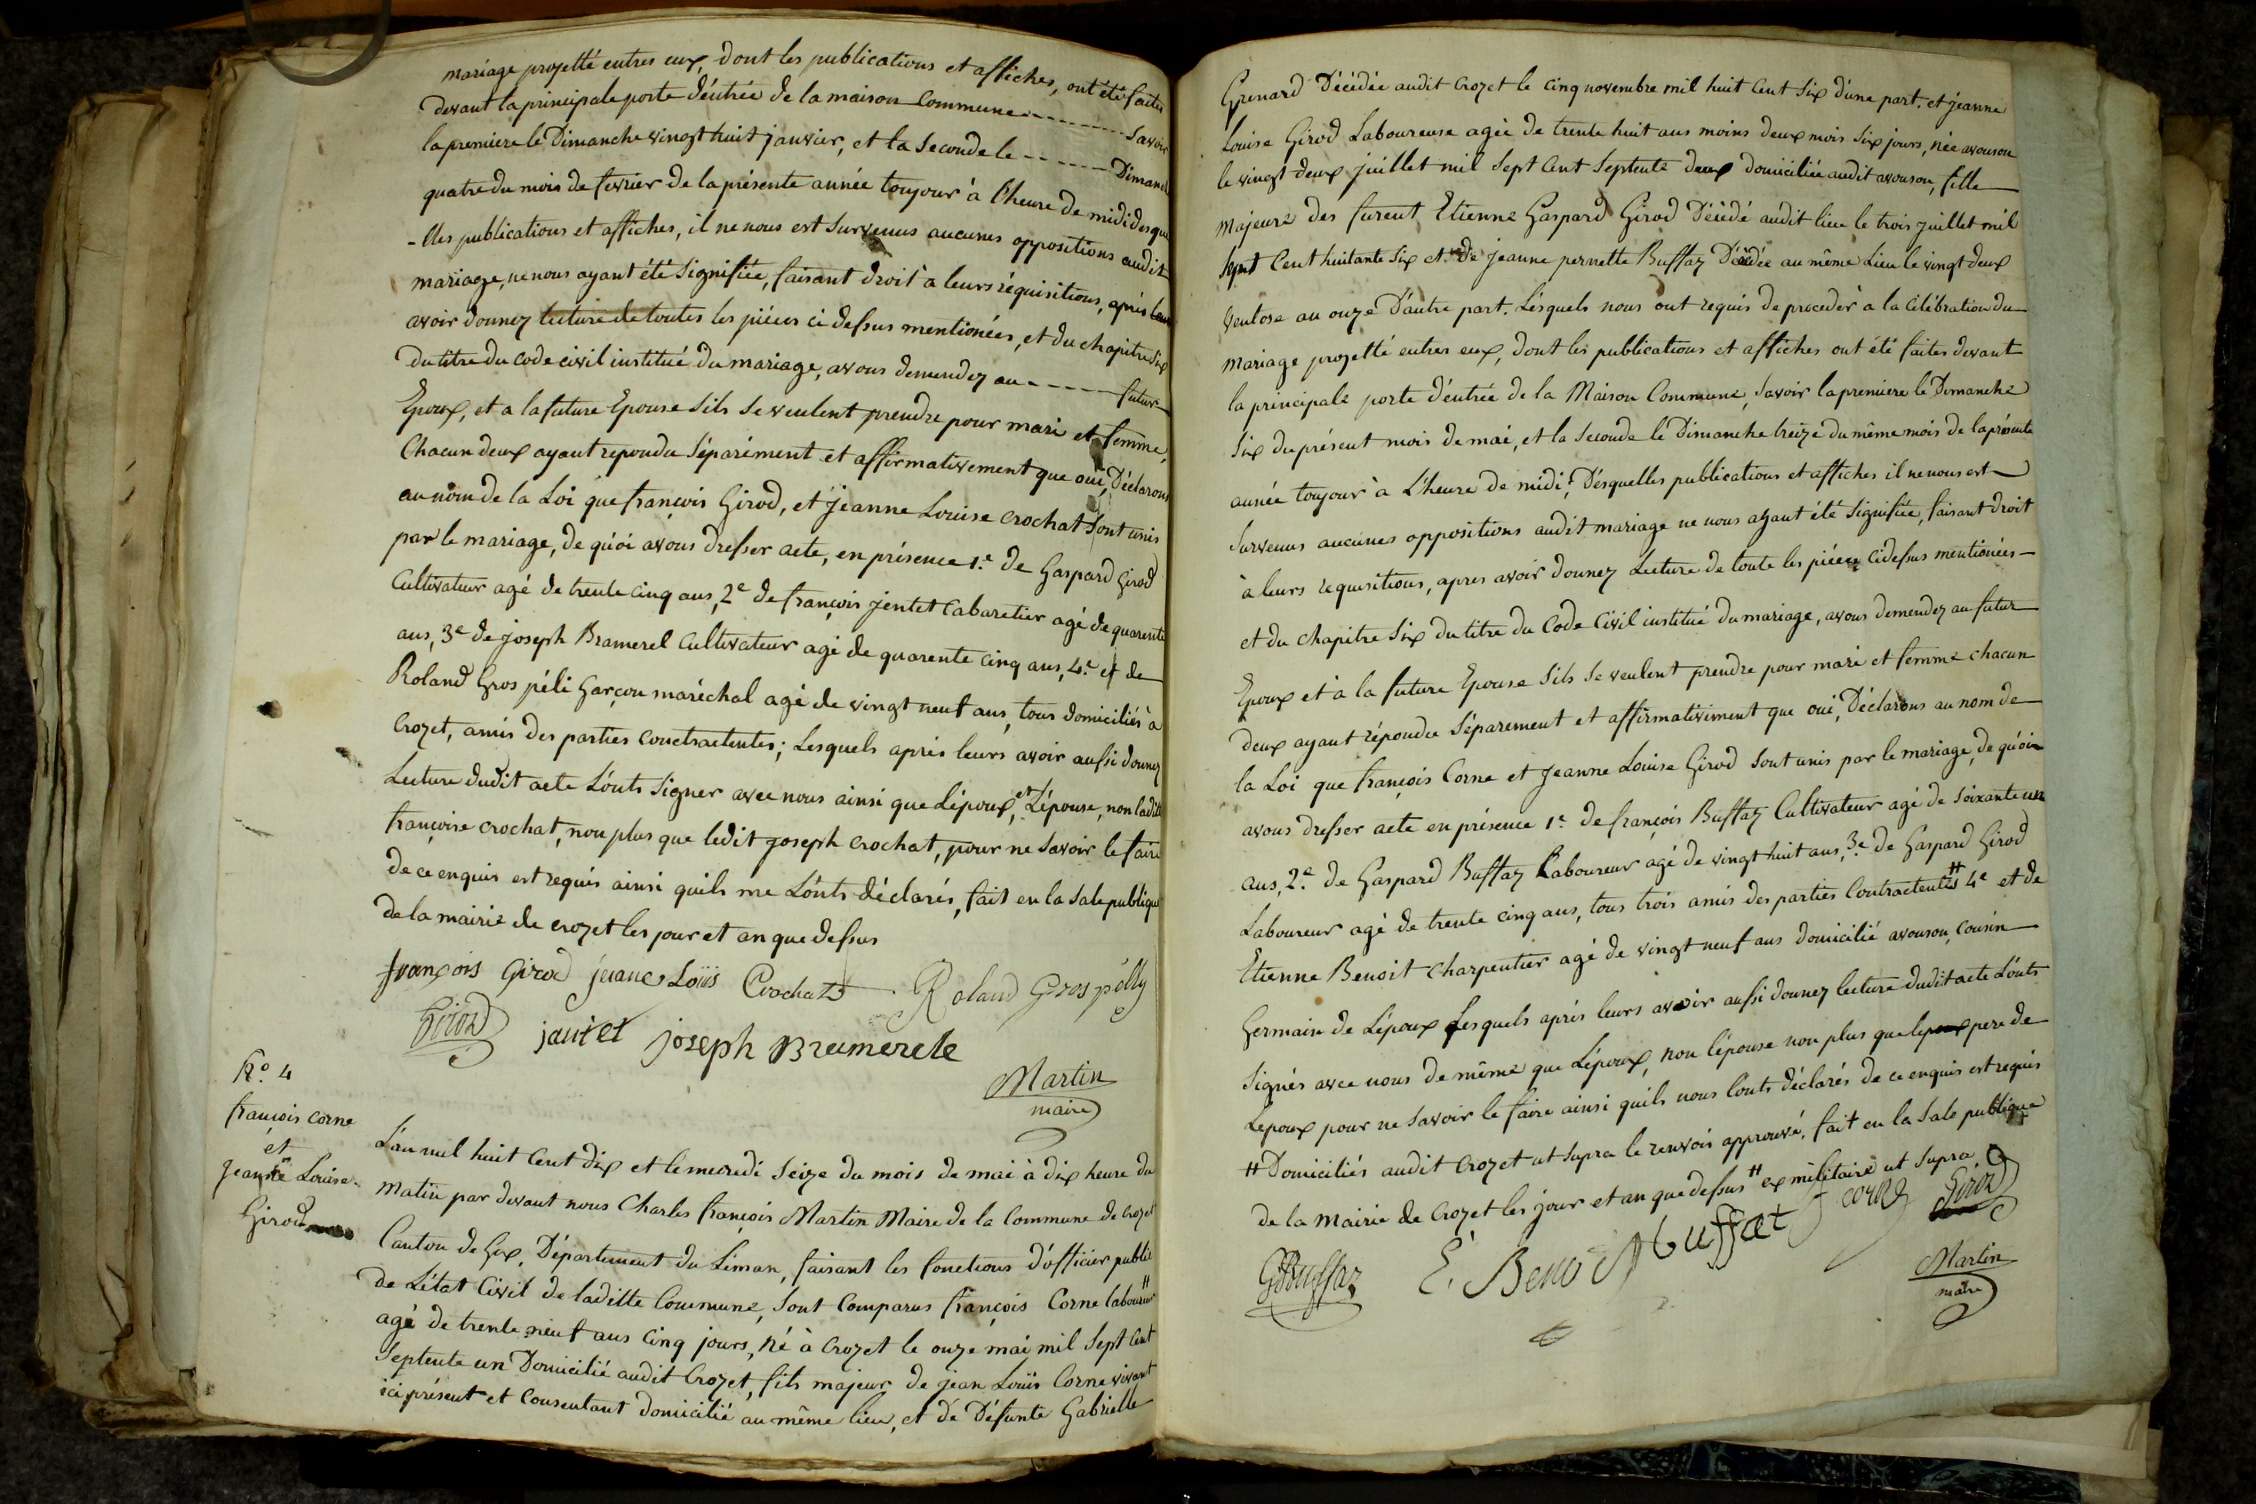 mariage projetté entres eux, dont les publications et affiches, ont été faites
devant la principale porte d'éntrée de la maison Commune ------- Savoir
la premiere le Dimanche vingt huit janvier, et la Seconde le ------ Dimanche
quatre du mois de fevrier de la présente année toujour à l'heure de midi desque
-lles publications et affiches, il ne nous est Survenus aucunes oppositions audit
mariage, ne nous ayant été Signifiée, faisant droit à leurs réquisitions, après leur
avoir donnez lecture de toutes les piéces ci dessus mentionées, et du chapitre Six
du titre du code civil institué du mariage, avons demendez au ----- futur
Epoux, et a la future Epouse Sils Se veulent prendre pour mari et femme,
Chacun deux ayant repondu Séparément et affirmativement que oui, Déclarons
au nom de la Loi que françois Girod, et Jeanne Louise crochat Sont unis
par le mariage, de quoi avons dresser acte, en présence 1.e de Gaspard Girod
Cultivateur agé de trente cinq ans, 2e de françois jentet Cabaretier agé de quarente
ans, 3e de joseph Bramerel Cultivateur agé de quarente cinq ans, 4.e et de
Roland Gros péli Garçon maréchal agé de vingt neuf ans, tous domiciliés à
Crozet, amis des parties Conctractentes; Lesquels après leurs avoir aussi donnez
Lecture dudit acte L'onts Signer avec nous ainsi que Lépoux, et L'épouse, non ladite
françoise crochat, non plus que ledit joseph crochat, pour ne Savoir le faire
de ce enquis est requis ainsi quils me L'onts déclarés, fait en la Sale publique
de la mairie de crozet les jour et an que dessus
françois Girod jeane Loïis Crochat Roland Grospélly
Girod jantet joseph Bramerele
Martin
maire
N.o 4
françois corne
et
Jeanne Louise
Girod
L'an mil huit Cent dix et le mecredi Seize du mois de mai à dix heure du
Matin par devant nous Charles françois Martin Maire de la Commune de Crozet
Canton de Gex, Département du Liman, faisant les fonctions d'officier public
de L'état Civil de laditte Commune, Sont Comparus françois Corne laboureur #
agé de trente neuf ans Cinq jours, Né à Crozet le onze mai mil Sept Cent
Septente un Domicilié audit Crozet, fils majeur de jean Louïs Corne vivant
ici présent et Consentant domicilié au même lieu, et de Défunte Gabrielle
Grenard Décédée audit Crozet le Cinq novembre mil huit Cent Six d'une part. et Jeanne
Louise Girod Laboureuse agée de trente huit ans moins deux mois Six jours, née avouson
le vingt deux juillet mil Sept Cent Septente deux domiciliée audit avouson, fille
majeure des furent Etienne Gaspard Girod Décédé audit lieu le trois juillet mil
Sept Cent huitante Six et de jeanne pernette Buffaz Décédée au même Lieu le vingt deux
Ventose an onze D'autre part. Lésquels nous ont requis de proceder à la Célébration du
mariage projetté entres eux, dont les publications et affiches ont été faites devant
la principale porte d'éntrée de la Maison Commune, Savoir la premiere le Dimanche
Six du présent mois de mai, et la Seconde le Dimanche treize du même mois de la présente
année toujour à L'heure de midi, Désquelles publications et affiches il ne nous est
Survenus aucunes oppositions audit mariage ne nous ayant été Signifiée, faisant droit
à leurs requisitions, apres avoir donnez Lecture de toute les piéces cidessus mentionées
et du chapitre Six du titre du Code Civil institué du mariage, avons demendez au futur
Epoux et à la future Epouse Sils Se veulent prendre pour mari et femme chacun
deux ayant répondu Séparement et affirmativement que oui, Déclarons au nom de
la Loi que françois Corne et Jeanne Louise Girod Sont unis par le mariage, de quoi
avons dresser acte en présence 1.e de françois Buffaz Cultivateur agé de Soixante un
ans, 2.e de Gaspard Buffaz Laboureur agé de vingt huit ans, 3e de Gaspard Girod
Laboureur agé de trente cinq ans, tous trois amis des parties Contractentes # 4e et de
Etienne Benoit Charpentier agé de vingt neuf ans domicilié avouson, Cousin
Germain de Lépoux Lesquels après leurs avoir aussi donnez lecture dudit acte L'onts
Signés avec nous de même que Lépoux, non l'épouse non plus que le pere de
Lepoux pour ne Savoir le faire ainsi quils nous L'onts déclarés de ce enquis est requis
# Domiciliés audit Crozet ut Supra le renvois approuvé, fait en la Sale publique
de la Mairie de Crozet les jour et an que dessus # ex militaire ut Supra
GBuffaz E. Benoi Buffat f corne Girod
Martin
maire